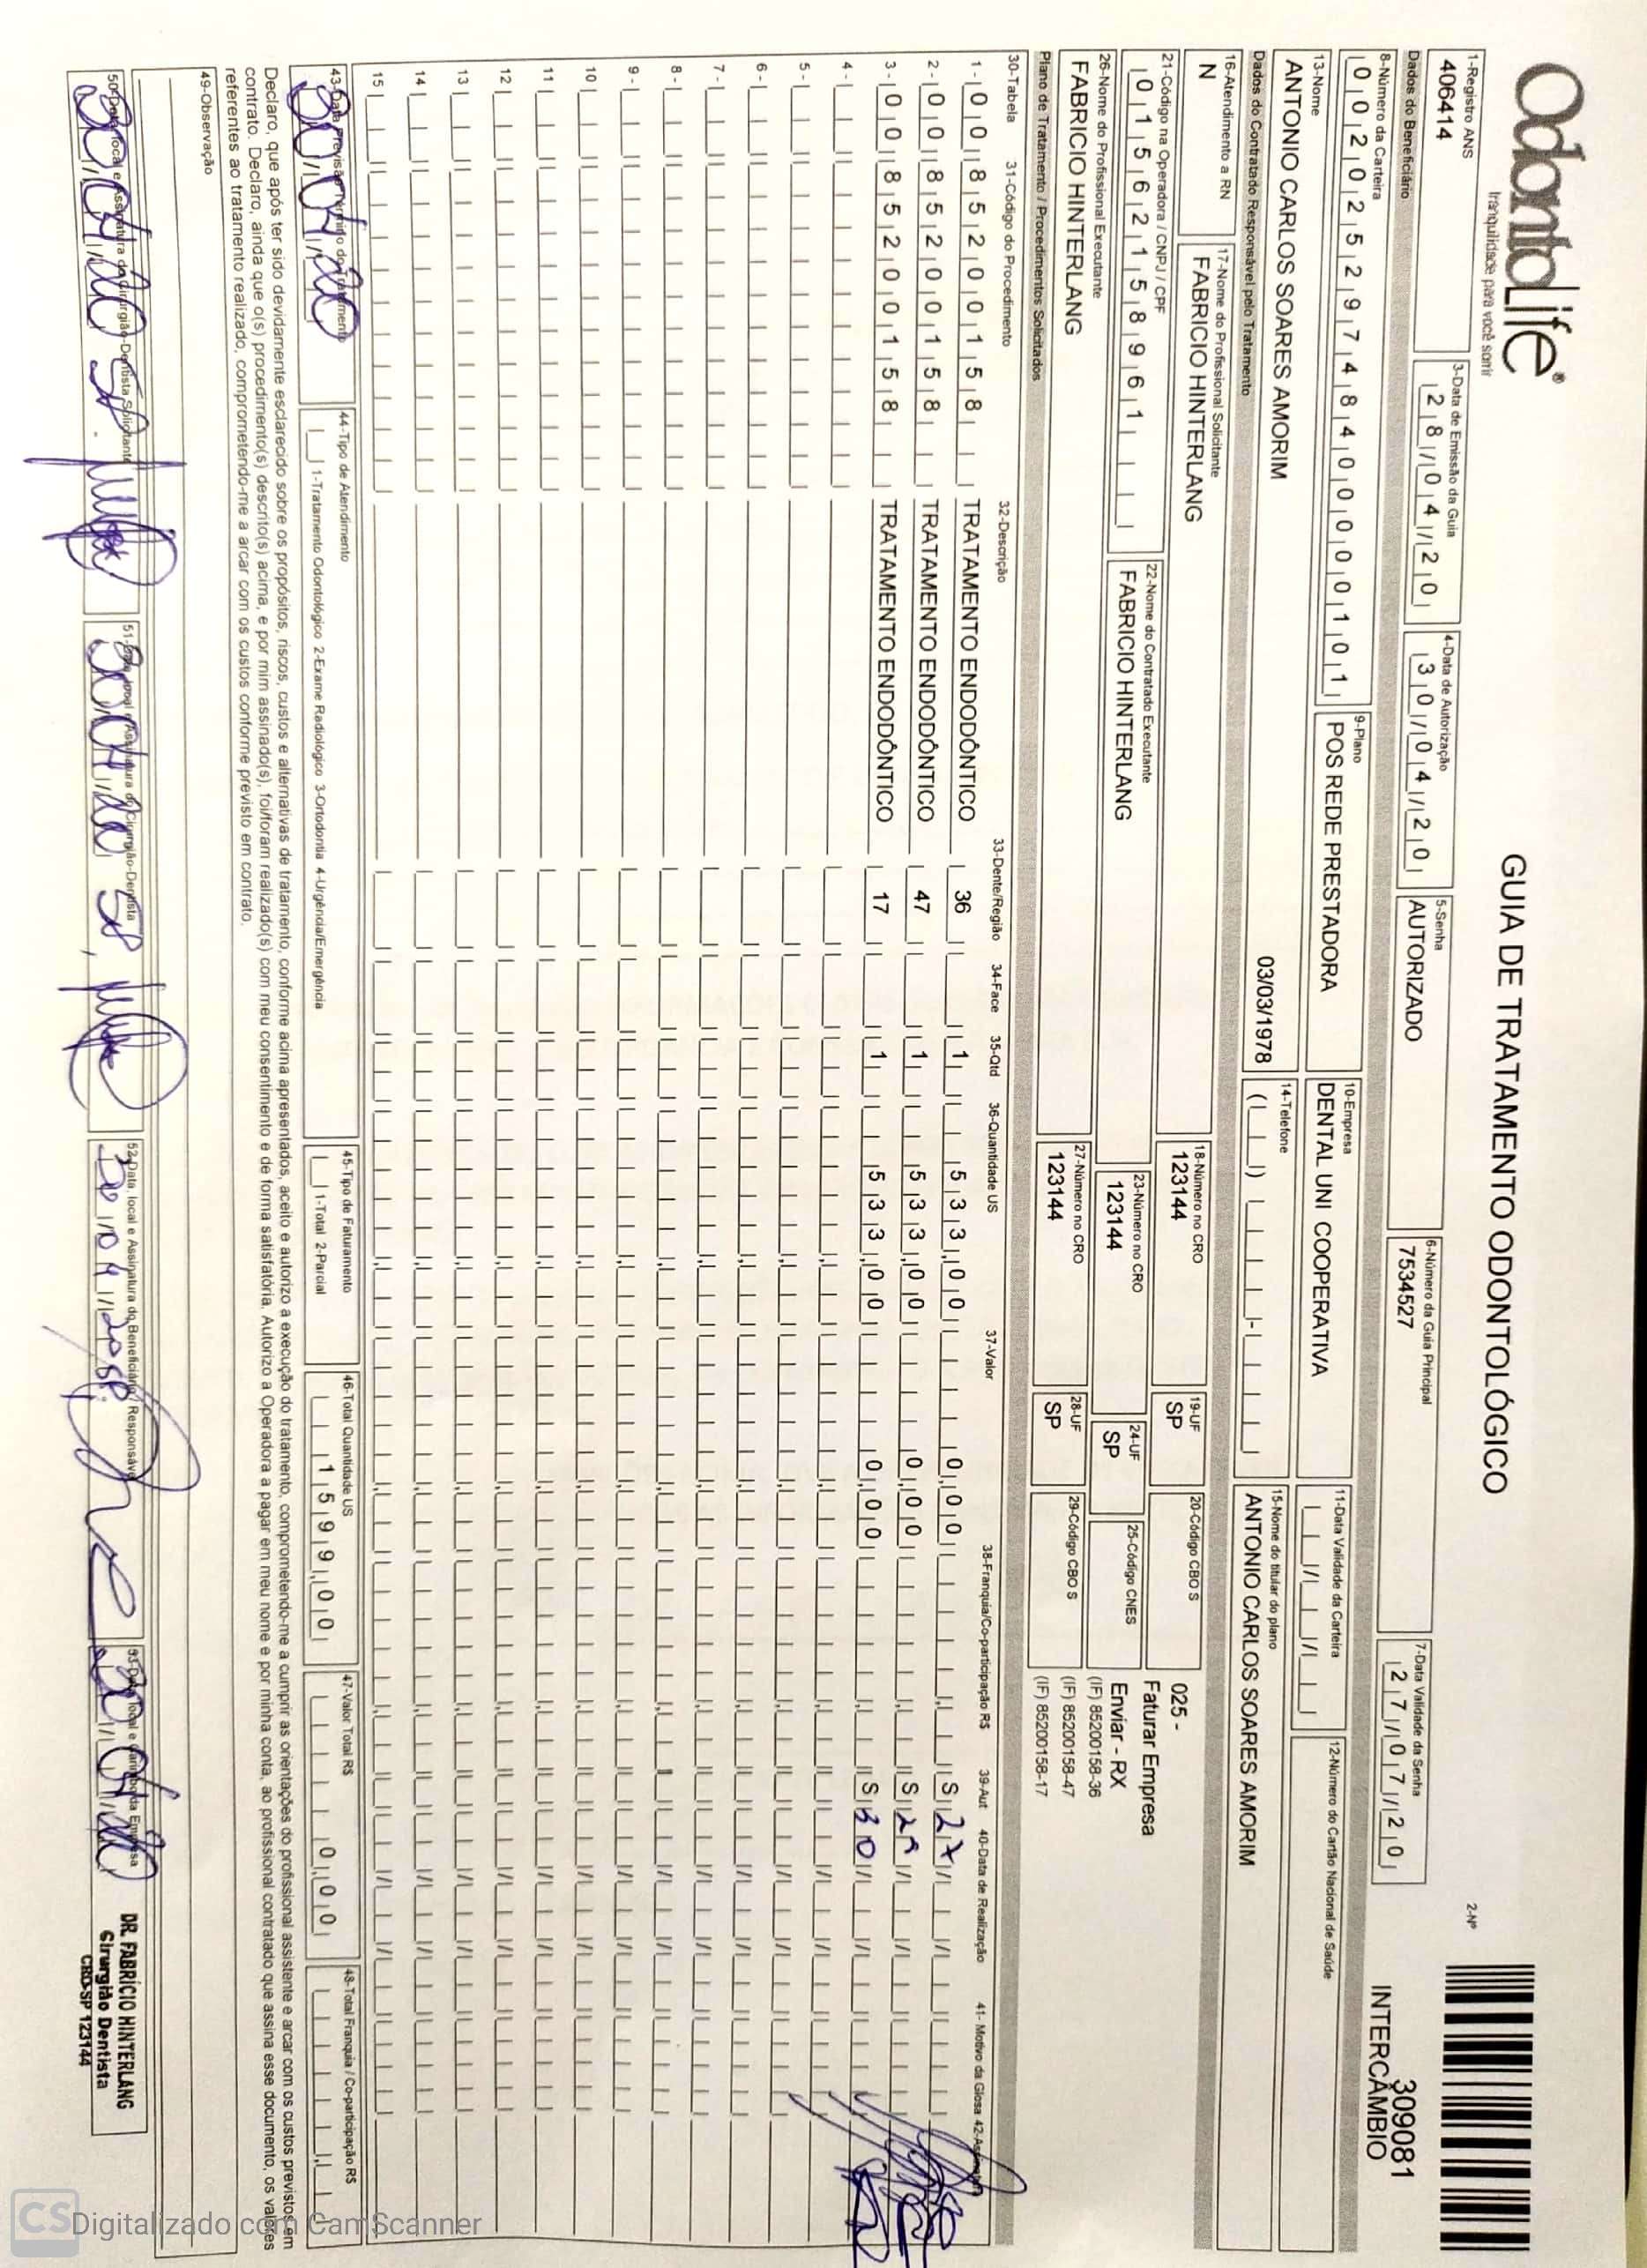 OdontoLife®
tranquilidade para você sorrir
GUIA DE TRATAMENTO ODONTOLÓGICO
2-Nº
309081
INTERCÂMBIO
1-Registro ANS
406414
3-Data de Emissão da Guia
28/04/20
4-Data de Autorização
30/04/20
5-Senha
AUTORIZADO
6-Número da Guia Principal
7534527
7-Data Validade da Senha
27/07/20
Dados do Beneficiário
8-Número da Carteira
00202529748400000101
9-Plano
POS REDE PRESTADORA
10-Empresa
DENTAL UNI COOPERATIVA
11-Data Validade da Carteira
12-Número do Cartão Nacional de Saúde
13-Nome
ANTONIO CARLOS SOARES AMORIM
03/03/1978
14-Telefone
15-Nome do titular do plano
ANTONIO CARLOS SOARES AMORIM
Dados do Contratado Responsável pelo Tratamento
16-Atendimento a RN
N
17-Nome do Profissional Solicitante
FABRICIO HINTERLANG
18-Número no CRO
123144
19-UF
SP
20-Código CBO S
025 -
Faturar Empresa
Enviar - RX
(IF) 85200158-36
(IF) 85200158-47
(IF) 85200158-17
21-Código na Operadora / CNPJ / CPF
01562158961
22-Nome do Contratado Executante
FABRICIO HINTERLANG
23-Número no CRO
123144
24-UF
SP
25-Código CNES
26-Nome do Profissional Executante
FABRICIO HINTERLANG
27-Número no CRO
123144
28-UF
SP
29-Código CBO S
Plano de Tratamento / Procedimentos Solicitados
30-Tabela 31-Código do Procedimento 32-Descrição 33-Dente/Região 34-Face 35-Qtd 36-Quantidade US 37-Valor 38-Franquia/Co-participação R$ 39-Aut 40-Data de Realização 41- Motivo da Glosa 42-Assinatura
1 - 00 85200158 TRATAMENTO ENDODÔNTICO 36 1 533,00 0,00 S
2 - 00 85200158 TRATAMENTO ENDODÔNTICO 47 1 533,00 0,00 S
3 - 00 85200158 TRATAMENTO ENDODÔNTICO 17 1 533,00 0,00 S 30
4 -
5 -
6 -
7 -
8 -
9 -
10
11
12
13
14
15
43-Data Previsão Término do Tratamento
30/04/20
44-Tipo de Atendimento
1-Tratamento Odontológico 2-Exame Radiológico 3-Ortodontia 4-Urgência/Emergência
45-Tipo de Faturamento
1-Total 2-Parcial
46-Total Quantidade US
1599,00
47-Valor Total R$
0,00
48-Total Franquia / Co-participação R$
Declaro, que após ter sido devidamente esclarecido sobre os propósitos, riscos, custos e alternativas de tratamento, conforme acima apresentados, aceito e autorizo a execução do tratamento, comprometendo-me a cumprir as orientações do profissional assistente e arcar com os custos previstos em
contrato. Declaro, ainda que o(s) procedimento(s) descrito(s) acima, e por mim assinado(s), foi/foram realizado(s) com meu consentimento e de forma satisfatória. Autorizo a Operadora a pagar em meu nome e por minha conta, ao profissional contratado que assina esse documento, os valores
referentes ao tratamento realizado, comprometendo-me a arcar com os custos conforme previsto em contrato.
49-Observação
50-Data, local e Assinatura do Cirurgião-Dentista Solicitante
30/04/20 SP.
51-Data, local e Assinatura do Cirurgião-Dentista
30/04/20 SP,
52-Data, local e Assinatura do Beneficiário / Responsável
30/04/20 SP.
53-Data, local e Carimbo da Empresa
30/04/20
DR. FABRÍCIO HINTERLANG
Cirurgião Dentista
CRO-SP 123144
CS Digitalizado com CamScanner